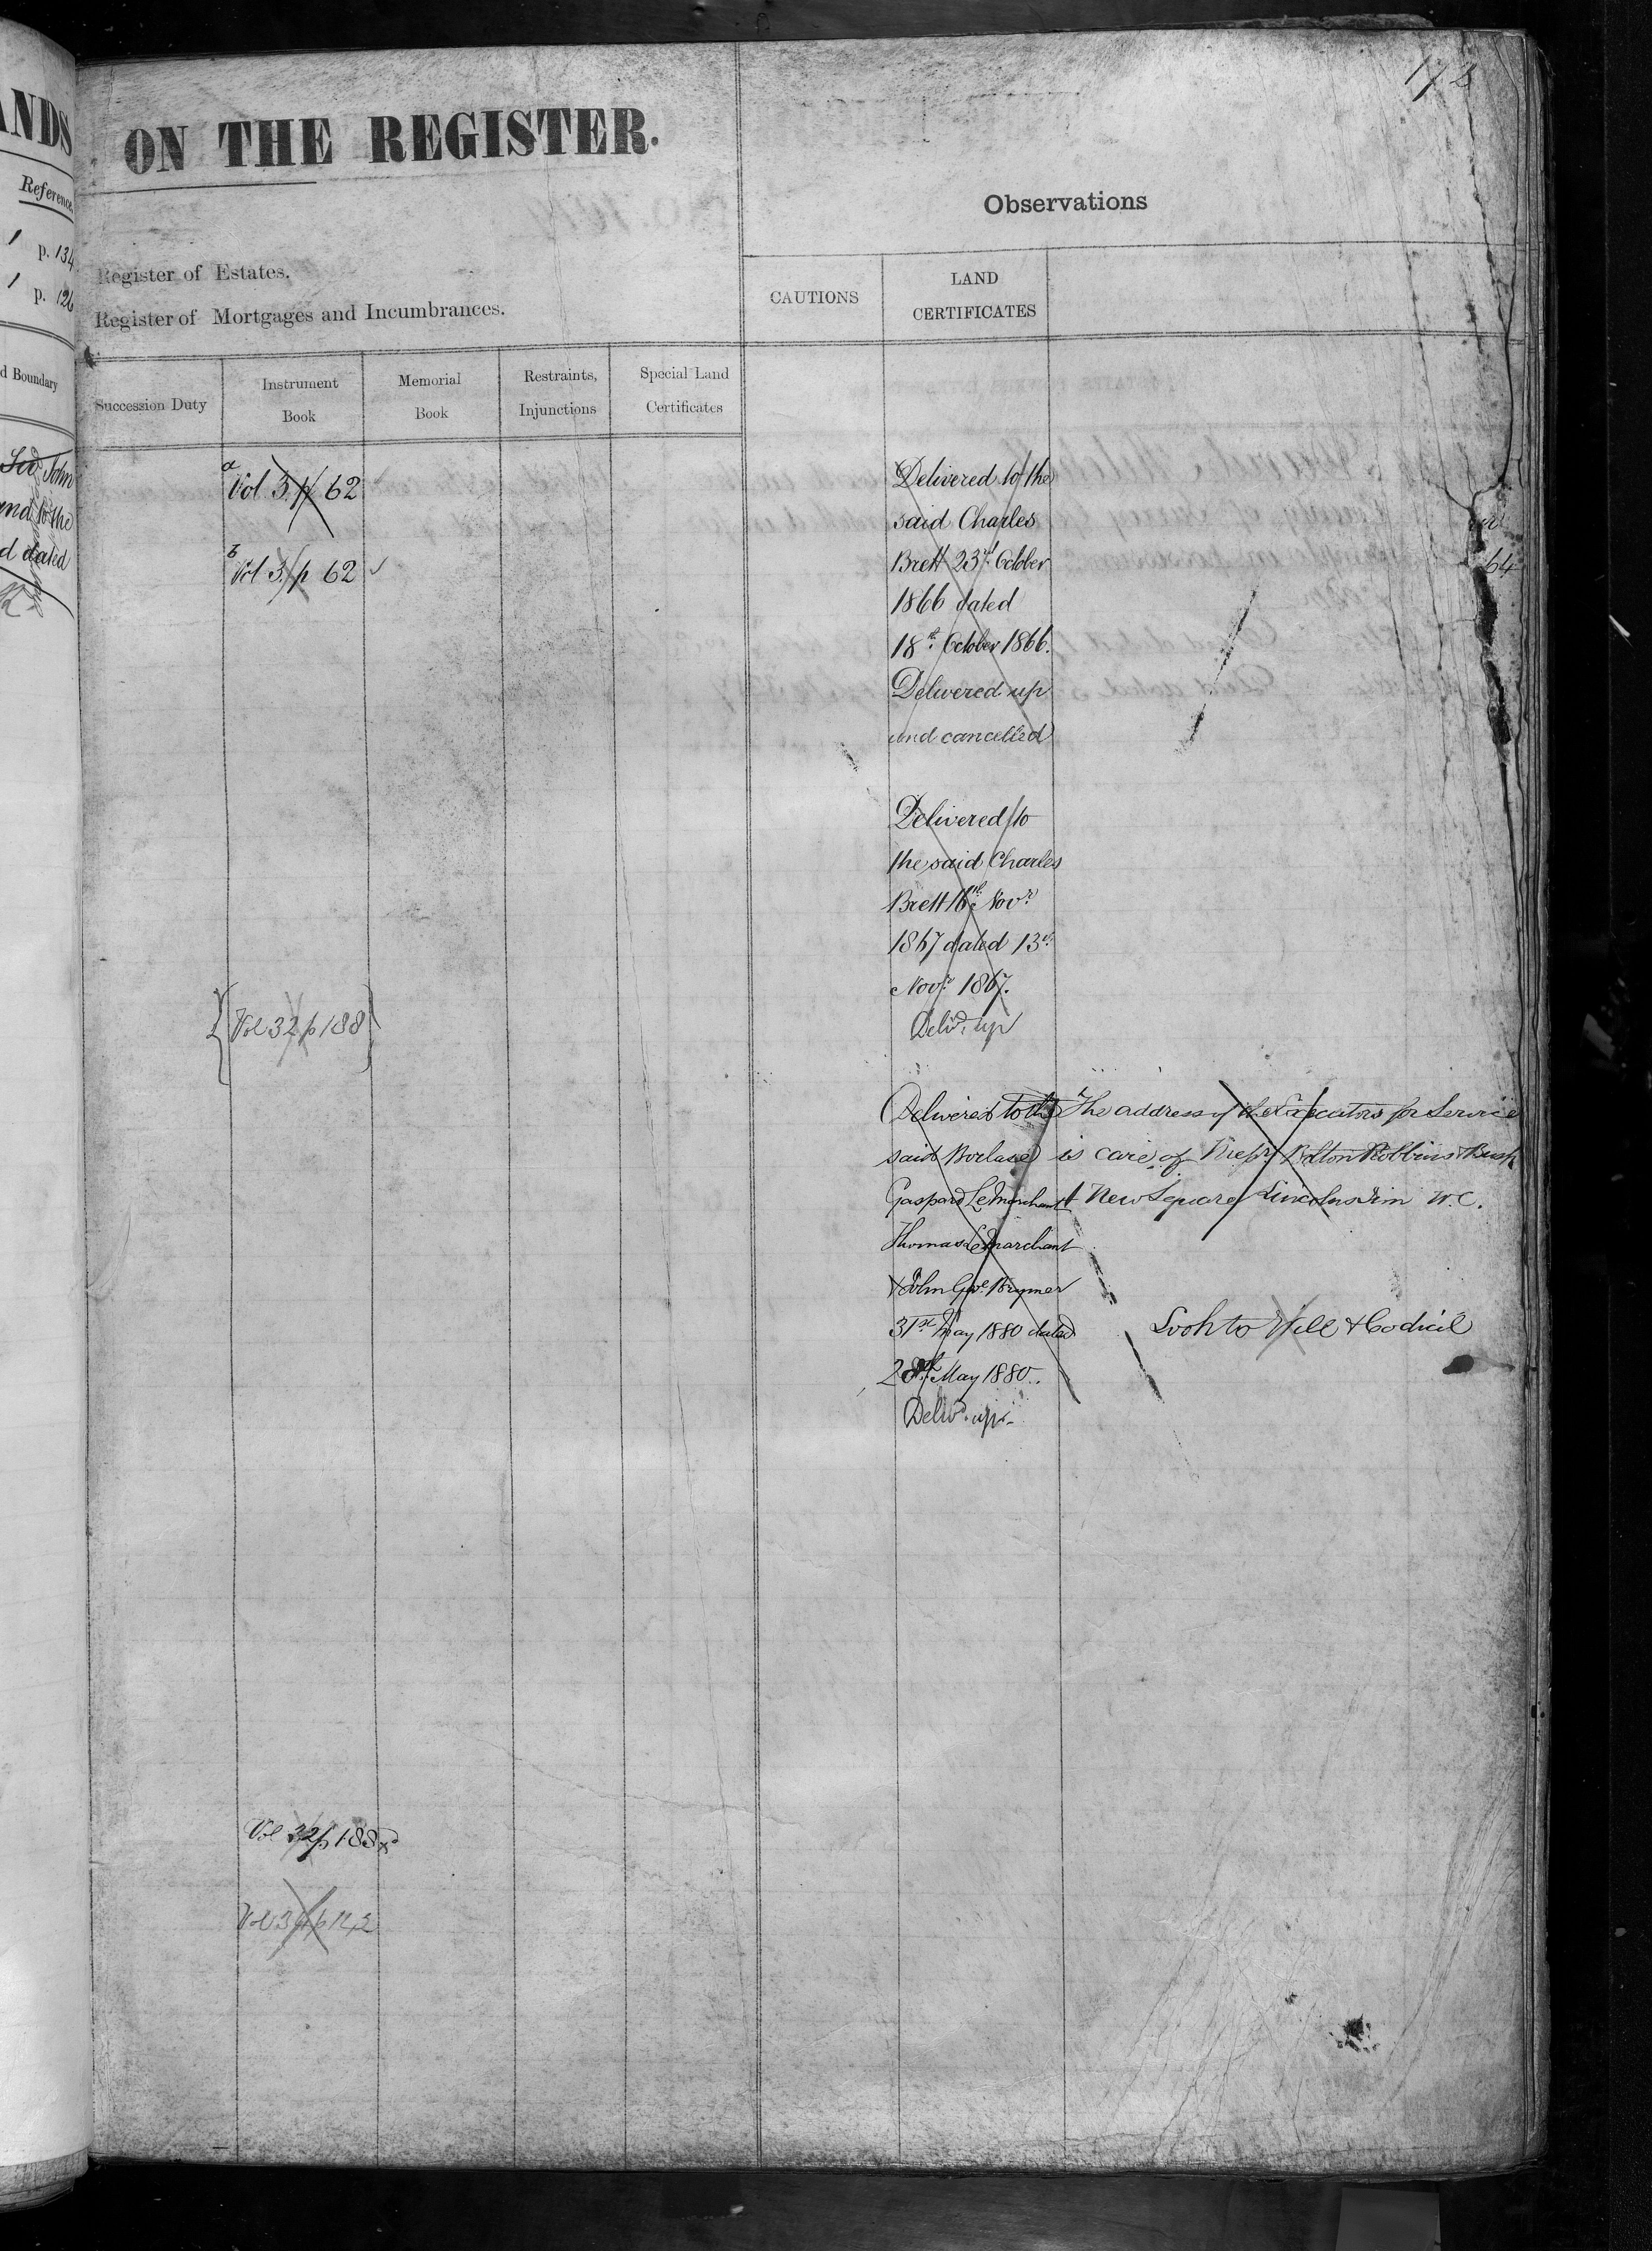 ANDS
Reference.
1 p. 134
1 p. 126
d Boundary
John
and to the
d dated
ON THE REGISTER.
Register of Estates.
Register of Mortgages and Incumbrances.
Succession Duty
Instrument
Book
Memorial
Book
Restraints,
Injunctions
Special Land
Certificates
Observations
CAUTIONS
LAND
CERTIFICATES
a
Vol 3 p 62
b
Vol 3 p 62
Vol 32 p 188
Vol 32 p 188
Delivered to the
said Charles
Brett 23rd October
1866 dated
18th October 1866.
Delivered up
and cancelled
Delivered to
the said Charles
Brett 16th Novr
1867 dated 13th
Novr 1867.
Delivd up
Delivered to the
said Borlase
Gaspard LeMarchant
Thomas LeMarchant
& John Geo. Brymer
31st May 1880 dated
28th May 1880.
Delivd up
The address of the Executors for Service
is care of Messrs Bolton Robbins & Busk
1 New Square Lincolns Inn W.C.
Look to Will & Codicil
64